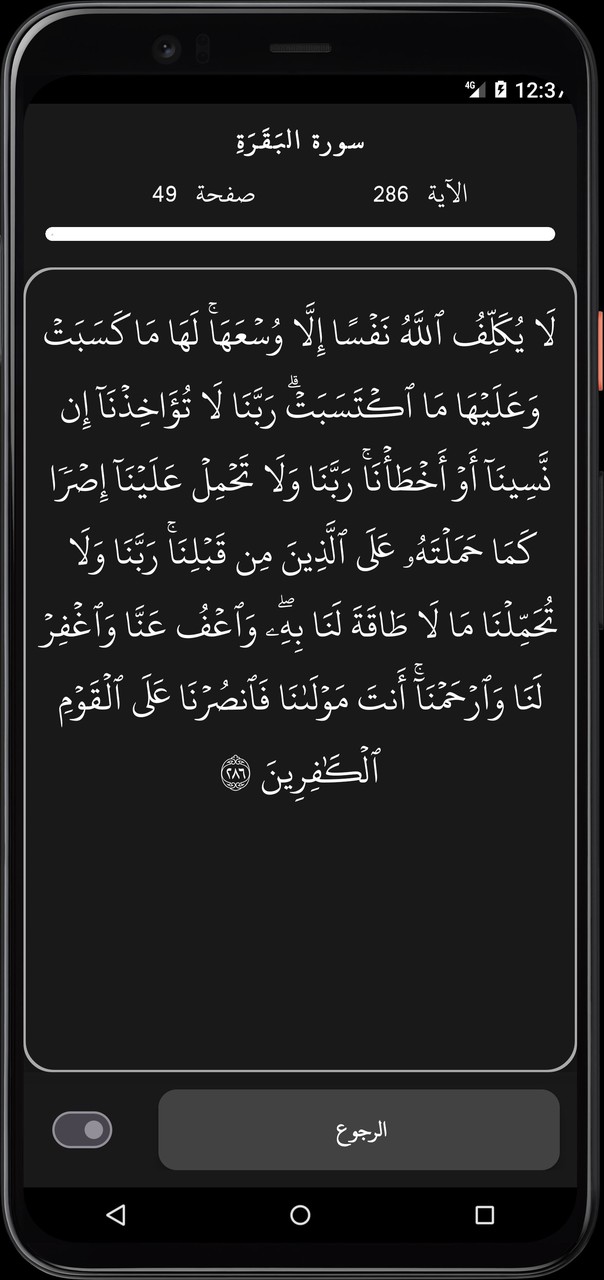 12:3
سورة البَقَرَةِ
الآية 286 صفحة 49
لَا يُكَلِّفُ ٱللَّهُ نَفۡسًا إِلَّا وُسۡعَهَاۚ لَهَا مَا كَسَبَتۡ
وَعَلَيۡهَا مَا ٱكۡتَسَبَتۡۗ رَبَّنَا لَا تُؤَاخِذۡنَآ إِن
نَّسِينَآ أَوۡ أَخۡطَأۡنَاۚ رَبَّنَا وَلَا تَحۡمِلۡ عَلَيۡنَآ إِصۡرٗا
كَمَا حَمَلۡتَهُۥ عَلَى ٱلَّذِينَ مِن قَبۡلِنَاۚ رَبَّنَا وَلَا
تُحَمِّلۡنَا مَا لَا طَاقَةَ لَنَا بِهِۦۖ وَٱعۡفُ عَنَّا وَٱغۡفِرۡ
لَنَا وَٱرۡحَمۡنَآۚ أَنتَ مَوۡلَىٰنَا فَٱنصُرۡنَا عَلَى ٱلۡقَوۡمِ
ٱلۡكَٰفِرِينَ ٢٨٦
الرجوع